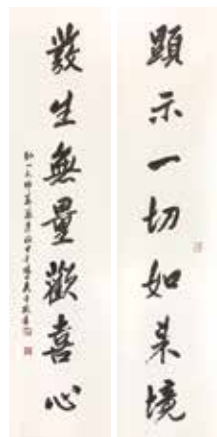 顯示一切如来境
發生無量歡喜心